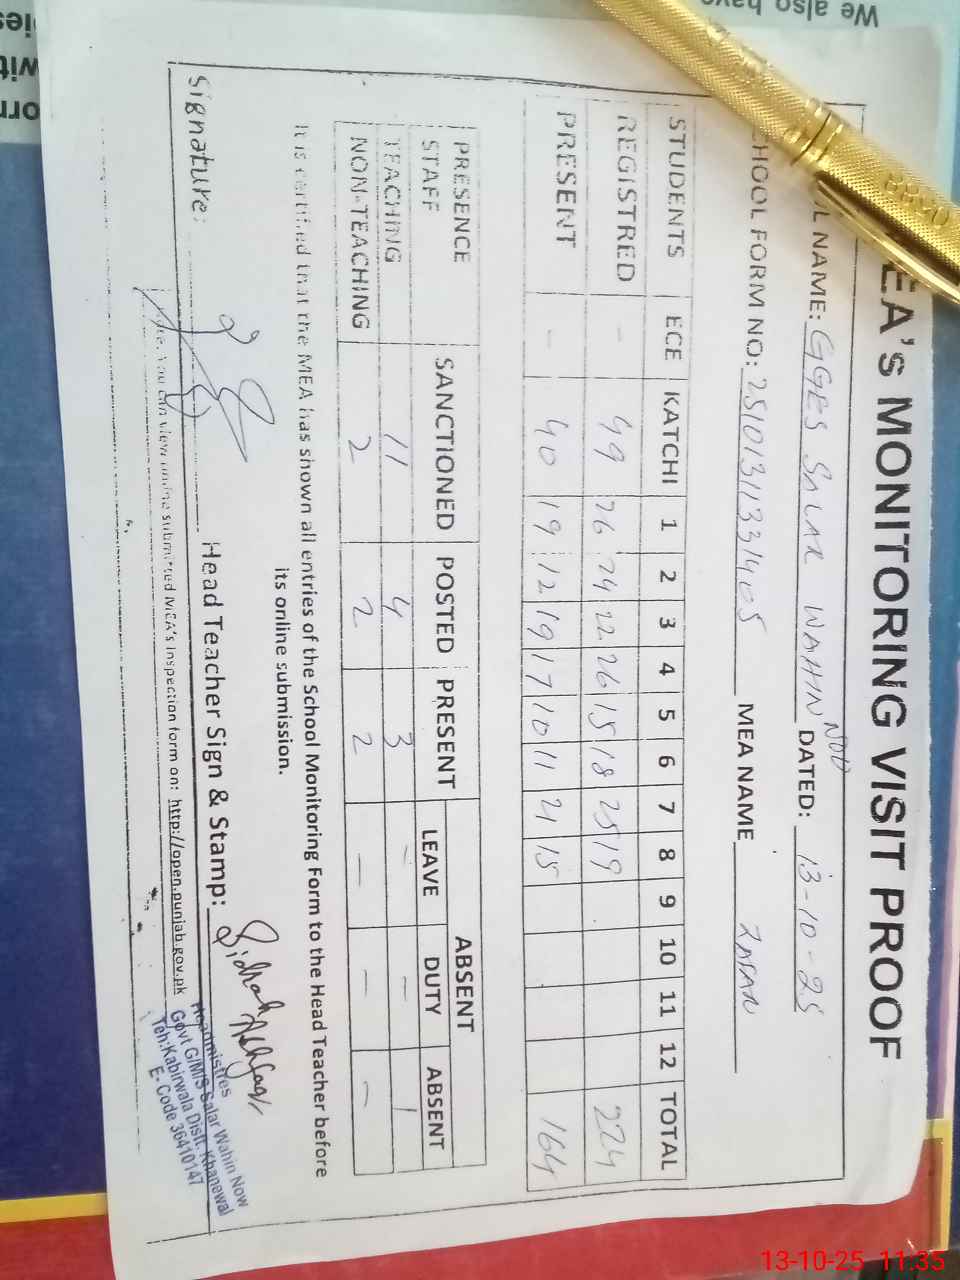 We also have
EA's MONITORING VISIT PROOF
L NAME: GGES SALAR WAHIN NOU DATED: 13-10-25
CHOOL FORM NO: 25101311331405 MEA NAME
STUDENTS ECE KATCHI 1 2 3 4 5 6 7 8 9 10 11 12 TOTAL
REGISTRED - 49 26 24 22 26 15 18 25 19 224
PRESENT - 40 19 12 19 17 10 11 21 15 164
PRESENCE STAFF SANCTIONED POSTED PRESENT ABSENT
LEAVE DUTY ABSENT
TEACHING 11 4 3 - - 1
NON-TEACHING 2 2 2 - - -
It is certified that the MEA has shown all entries of the School Monitoring Form to the Head Teacher before
its online submission.
Signature: Head Teacher Sign & Stamp: Sidrah Ashfaq
Headmistres
Govt G/M/S Salar Wahin Now
Teh:Kabirwala Distt. Khanewal
E- Code 36410147
You can view online submitted MEA's Inspection form on: http://open.punjab.gov.pk
13-10-25 11:35